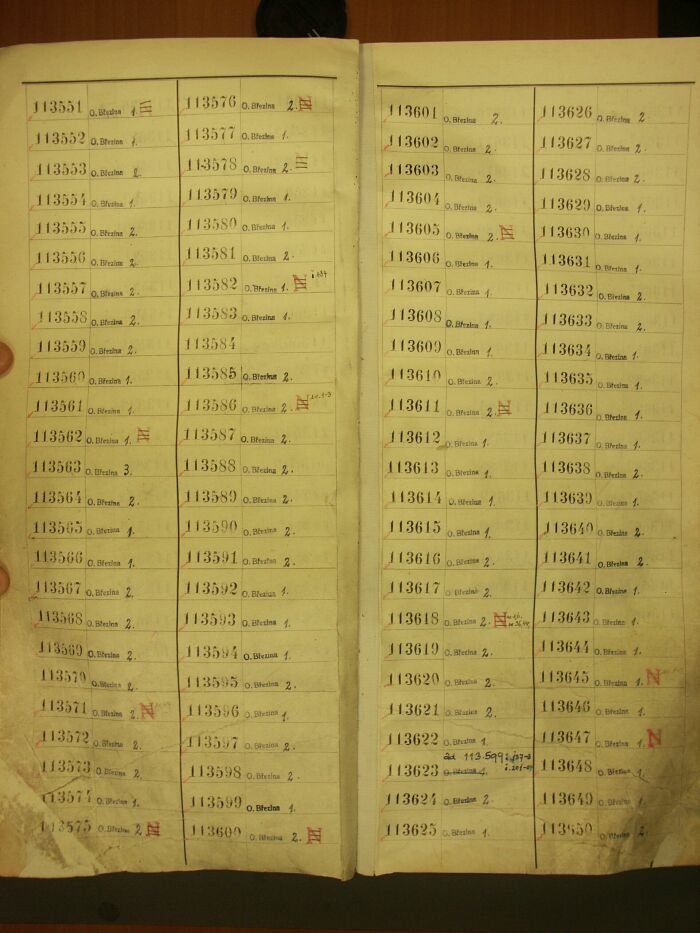 113551 O. Březina 1. III
113552 O. Březina 1.
113553 O. Březina 2.
113554 O. Březina 1.
113555 O. Březina 2.
113556 O. Březina 2.
113557 O. Březina 2.
113558 O. Březina 2.
113559 O. Březina 2.
113560 O. Březina 1.
113561 O. Březina 1.
113562 O. Březina 1.
113563 O. Březina 3.
113564 O. Březina 2.
113565 O. Březina 1.
113566 O. Březina 1.
113567 O. Březina 2.
113568 O. Březina 2.
113569 O. Březina 2.
113570 O. Březina 2.
113571 O. Březina 2.
113572 O. Březina 2.
113573 O. Březina 2.
113574 O. Březina 1.
113575 O. Březina 2.
113576 O. Březina 2.
113577 O. Březina 1.
113578 O. Březina 2. III
113579 O. Březina 1.
113580 O. Březina 1.
113581 O. Březina 2.
113582 O. Březina 1.
113583 O. Březina 1.
113584
113585 O. Březina 2.
113586 O. Březina 2.
113587 O. Březina 2.
113588 O. Březina 2.
113589 O. Březina 2.
113590 O. Březina 2.
113591 O. Březina 2.
113592 O. Březina 1.
113593 O. Březina 1.
113594 O. Březina 1.
113595 O. Březina 2.
113596 O. Březina 1.
113597 O. Březina 2.
113598 O. Březina 2.
113599 O. Březina 1.
113600 O. Březina 2.
113601 O. Březina 2.
113602 O. Březina 2.
113603 O. Březina 2.
113604 O. Březina 2.
113605 O. Březina 2.
113606 O. Březina 1.
113607 O. Březina 1.
113608 O. Březina 1.
113609 O. Březina 1.
113610 O. Březina 2.
113611 O. Březina 2.
113612 O. Březina 1.
113613 O. Březina 1.
113614 O. Březina 1.
113615 O. Březina 1.
113616 O. Březina 2.
113617 O. Březina 2.
113618 O. Březina 2.
113619 O. Březina 2.
113620 O. Březina 2.
113621 O. Březina 2.
113622 O. Březina 1.
ad 113.599
113623 O. Březina 1.
113624 O. Březina 2.
113625 O. Březina 1.
113626 O. Březina 2
113627 O. Březina 2.
113628 O. Březina 2.
113629 O. Březina 1.
113630 O. Březina 1.
113631 O. Březina 1.
113632 O. Březina 2.
113633 O. Březina 2.
113634 O. Březina 1.
113635 O. Březina 1.
113636 O. Březina 1.
113637 O. Březina 1.
113638 O. Březina 2.
113639 O. Březina 1.
113640 O. Březina 2.
113641 O. Březina 2.
113642 O. Březina 1.
113643 O. Březina 1.
113644 O. Březina 1.
113645 O. Březina 1.
113646 O. Březina 1.
113647 O. Březina 1.
113648 O. Březina 1.
113649 O. Březina 1.
113650 O. Březina 2.